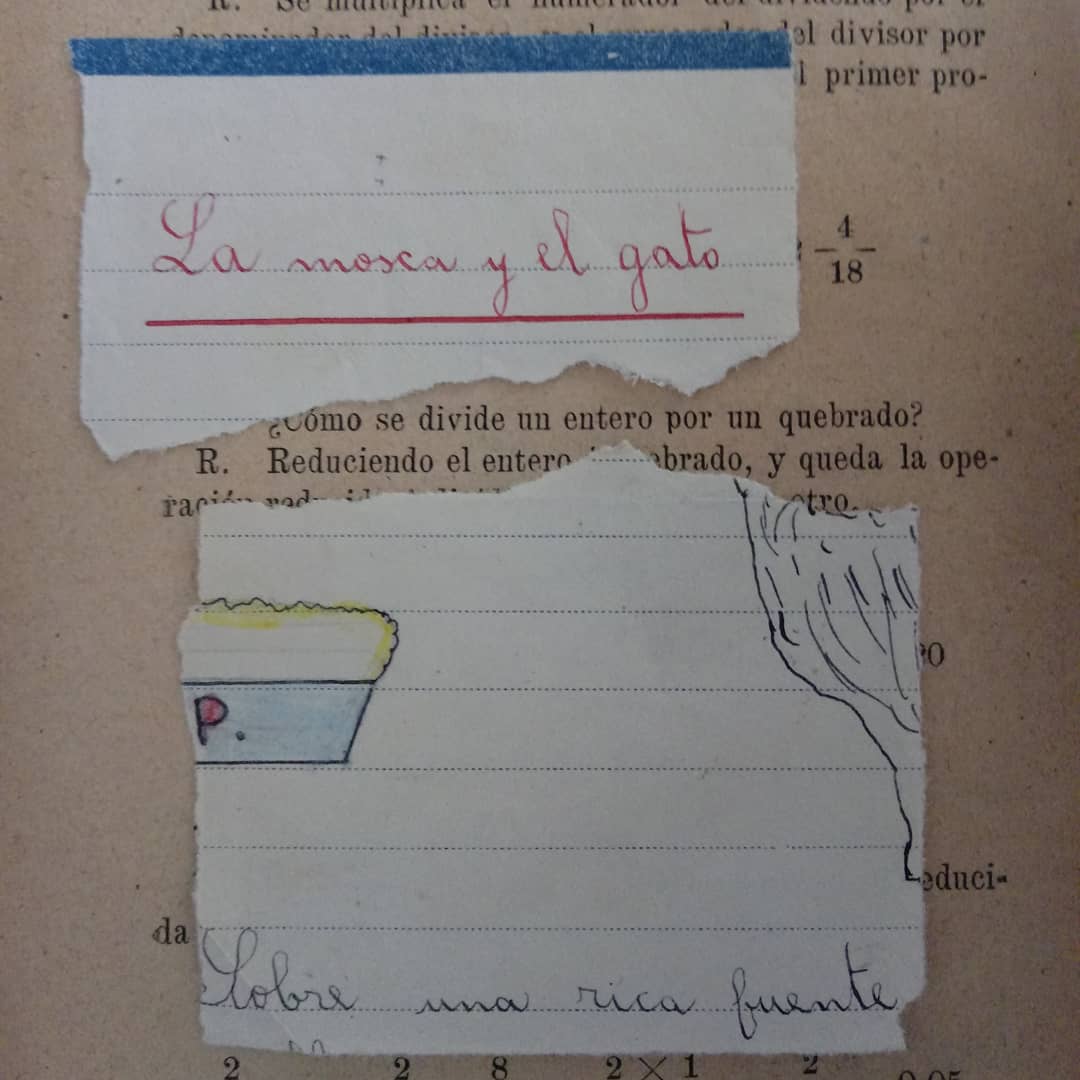 R. Se multiplica el numerador del dividendo por el
denominador del divisor, y el del divisor por
l primer pro-
La mosca y el gato
4
18
¿Cómo se divide un entero por un quebrado?
R. Reduciendo el entero brado, y queda la ope-
ración otro.
P.
0
educi-
da
Sobre una rica fuente
2 2 8 2 × 1 2 0,05